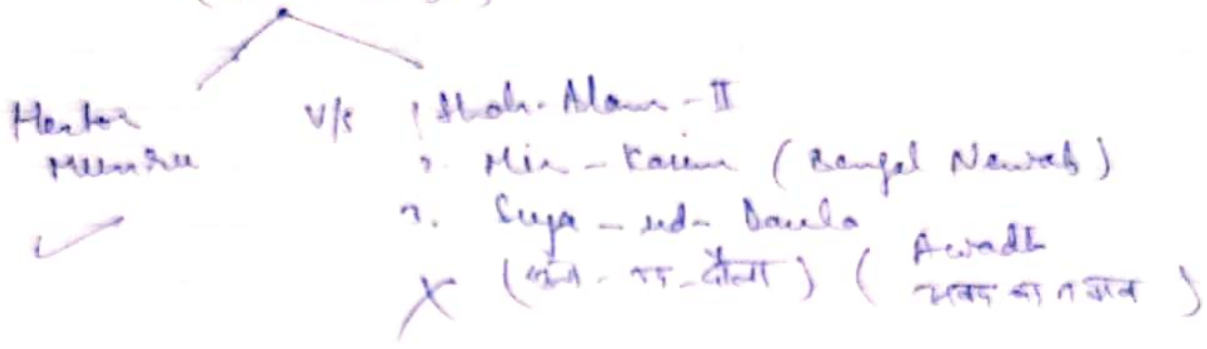 Hector V/s 1 Shah-Alam-II
Munru 2. Mir-Kasim (Bengal Nawab)
3. Suja-ud-Daula
(शुजा-उद-दौला) ( Awadh
अवध का नवाब )